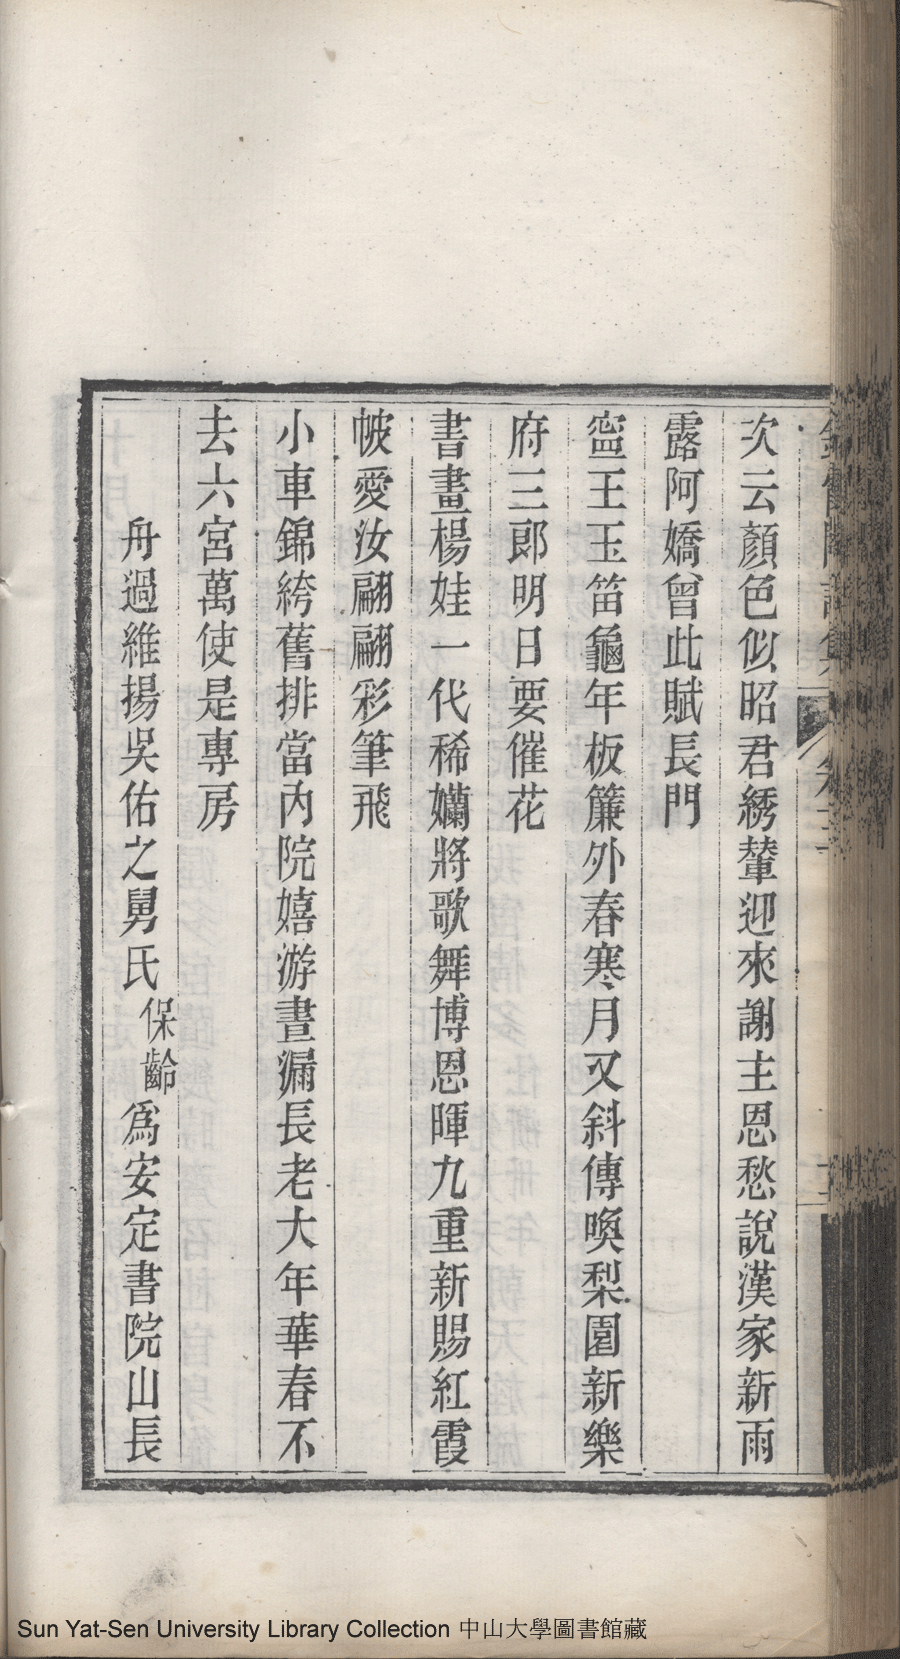 次云顏色似昭君綉輦迎來謝主恩愁說漢家新雨
露阿嬌曾此賦長門
寍王玉笛龜年板簾外春寒月又斜傳喚梨園新樂
府三郎明日要催花
書畫楊娃一代稀孏將歌舞博恩暉九重新賜紅霞
帔愛汝翩翩彩筆飛
小車錦絝舊排當內院嬉游晝漏長老大年華春不
去六宮萬使是專房
舟過維揚吳佑之舅氏保齡爲安定書院山長
Sun Yat-Sen University Library Collection 中山大學圖書館藏